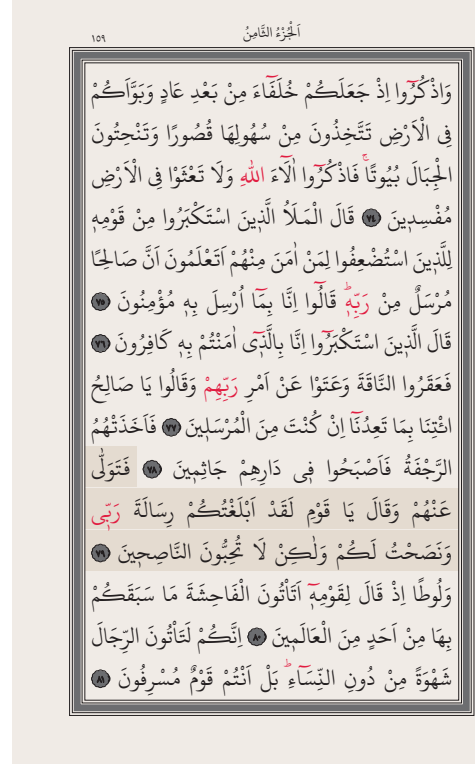 ١٥٩ اَلْجُزْءُ الثَّامِنُ
وَاذْكُرُٓوا اِذْ جَعَلَكُمْ خُلَفَٓاءَ مِنْ بَعْدِ عَادٍ وَبَوَّاَكُمْ
فِي الْاَرْضِ تَتَّخِذُونَ مِنْ سُهُولِهَا قُصُورًا وَتَنْحِتُونَ
الْجِبَالَ بُيُوتًاۚ فَاذْكُرُٓوا اٰلَٓاءَ اللّٰهِ وَلَا تَعْثَوْا فِي الْاَرْضِ
مُفْسِد۪ينَ ﴿٧٤﴾ قَالَ الْمَلَاُ الَّذ۪ينَ اسْتَكْبَرُوا مِنْ قَوْمِه۪
لِلَّذ۪ينَ اسْتُضْعِفُوا لِمَنْ اٰمَنَ مِنْهُمْ اَتَعْلَمُونَ اَنَّ صَالِحًا
مُرْسَلٌ مِنْ رَبِّه۪ۜ قَالُٓوا اِنَّا بِمَٓا اُرْسِلَ بِه۪ مُؤْمِنُونَ ﴿٧٥﴾
قَالَ الَّذ۪ينَ اسْتَكْبَرُٓوا اِنَّا بِالَّذ۪ٓي اٰمَنْتُمْ بِه۪ كَافِرُونَ ﴿٧٦﴾
فَعَقَرُوا النَّاقَةَ وَعَتَوْا عَنْ اَمْرِ رَبِّهِمْ وَقَالُوا يَا صَالِحُ
ائْتِنَا بِمَا تَعِدُنَٓا اِنْ كُنْتَ مِنَ الْمُرْسَل۪ينَ ﴿٧٧﴾ فَاَخَذَتْهُمُ
الرَّجْفَةُ فَاَصْبَحُوا ف۪ي دَارِهِمْ جَاثِم۪ينَ ﴿٧٨﴾ فَتَوَلّٰى
عَنْهُمْ وَقَالَ يَا قَوْمِ لَقَدْ اَبْلَغْتُكُمْ رِسَالَةَ رَبّ۪ي
وَنَصَحْتُ لَكُمْ وَلٰكِنْ لَا تُحِبُّونَ النَّاصِح۪ينَ ﴿٧٩﴾
وَلُوطًا اِذْ قَالَ لِقَوْمِه۪ٓ اَتَاْتُونَ الْفَاحِشَةَ مَا سَبَقَكُمْ
بِهَا مِنْ اَحَدٍ مِنَ الْعَالَم۪ينَ ﴿٨٠﴾ اِنَّكُمْ لَتَاْتُونَ الرِّجَالَ
شَهْوَةً مِنْ دُونِ النِّسَٓاءِۜ بَلْ اَنْتُمْ قَوْمٌ مُسْرِفُونَ ﴿٨١﴾